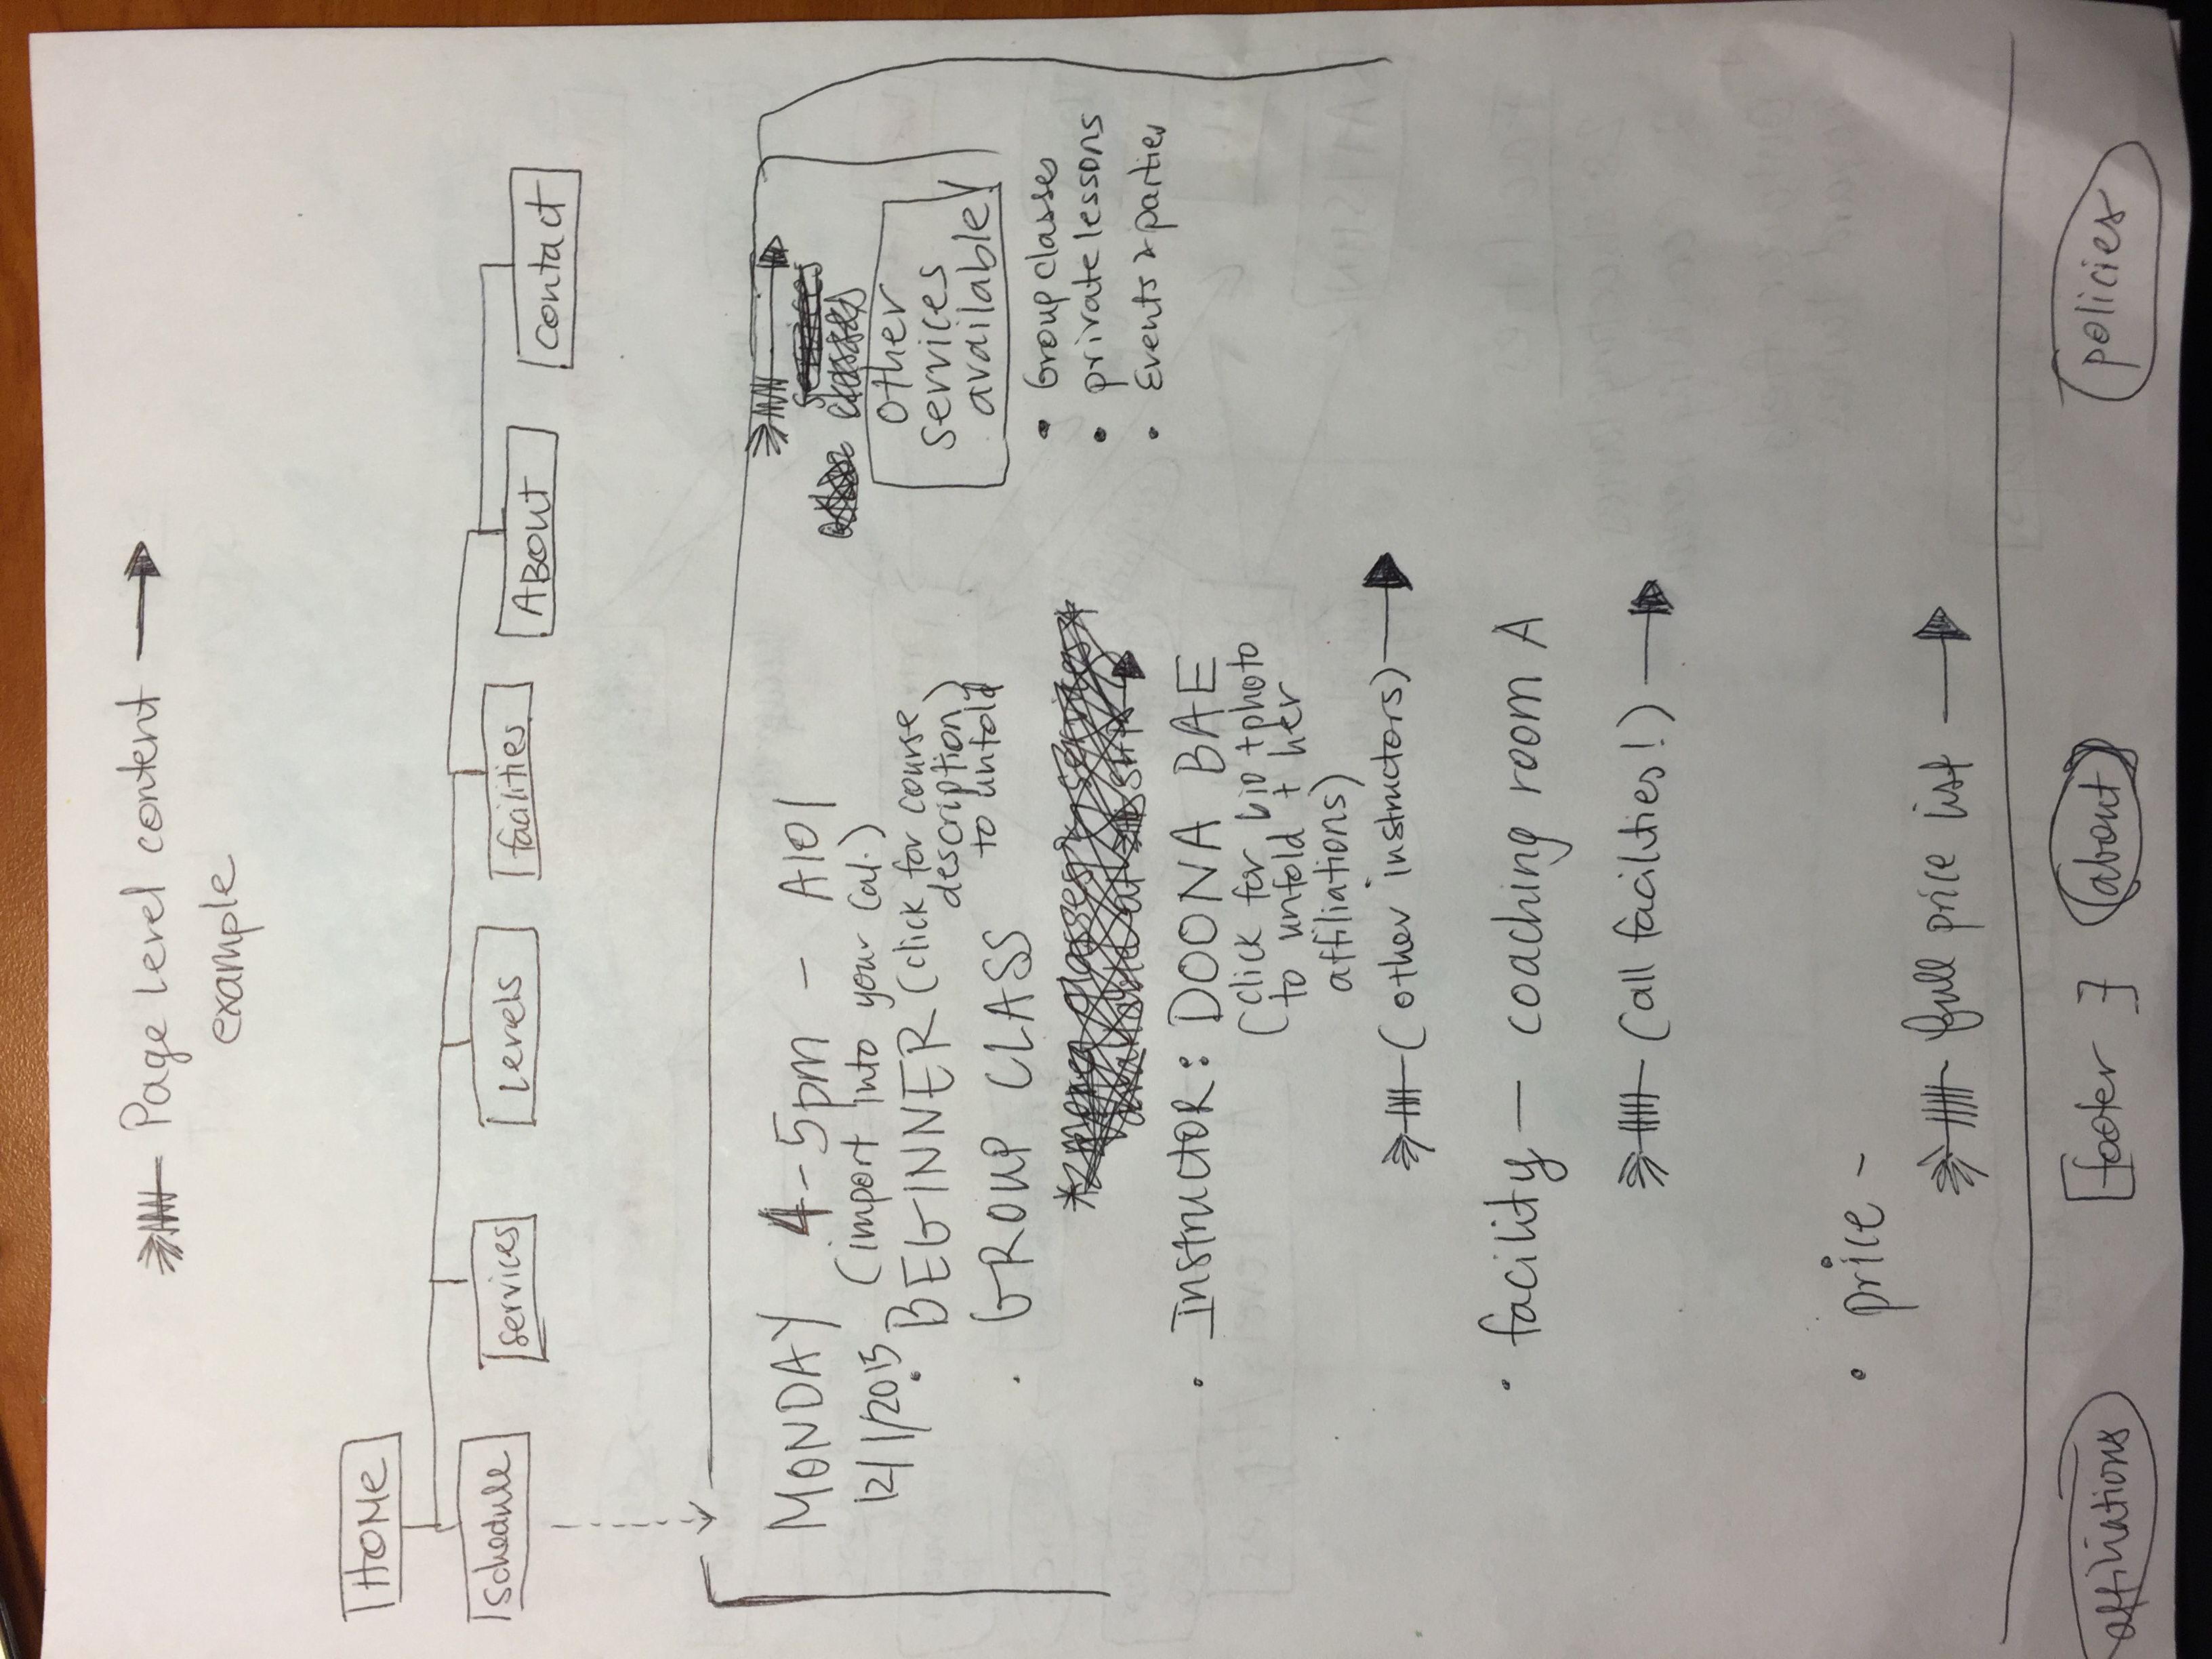 Page Level content
example
HOME
schedule
services
Levels
facilities
ABOUT
contact
MONDAY 4-5pm - A101
(import into your Cal.)
12/1/2015
• BEGINNER (click for course
description)
to unfold
• GROUP CLASS
• Instructor: DOONA BAE
(click for bio + photo
to unfold + her
affiliations)
(other instructors)
• facility — coaching room A
(all facilities!)
• price -
full price list
services
classes
other
services
available!
• Group classes
• private lessons
• Events & parties
affiliations
[footer]
about
policies